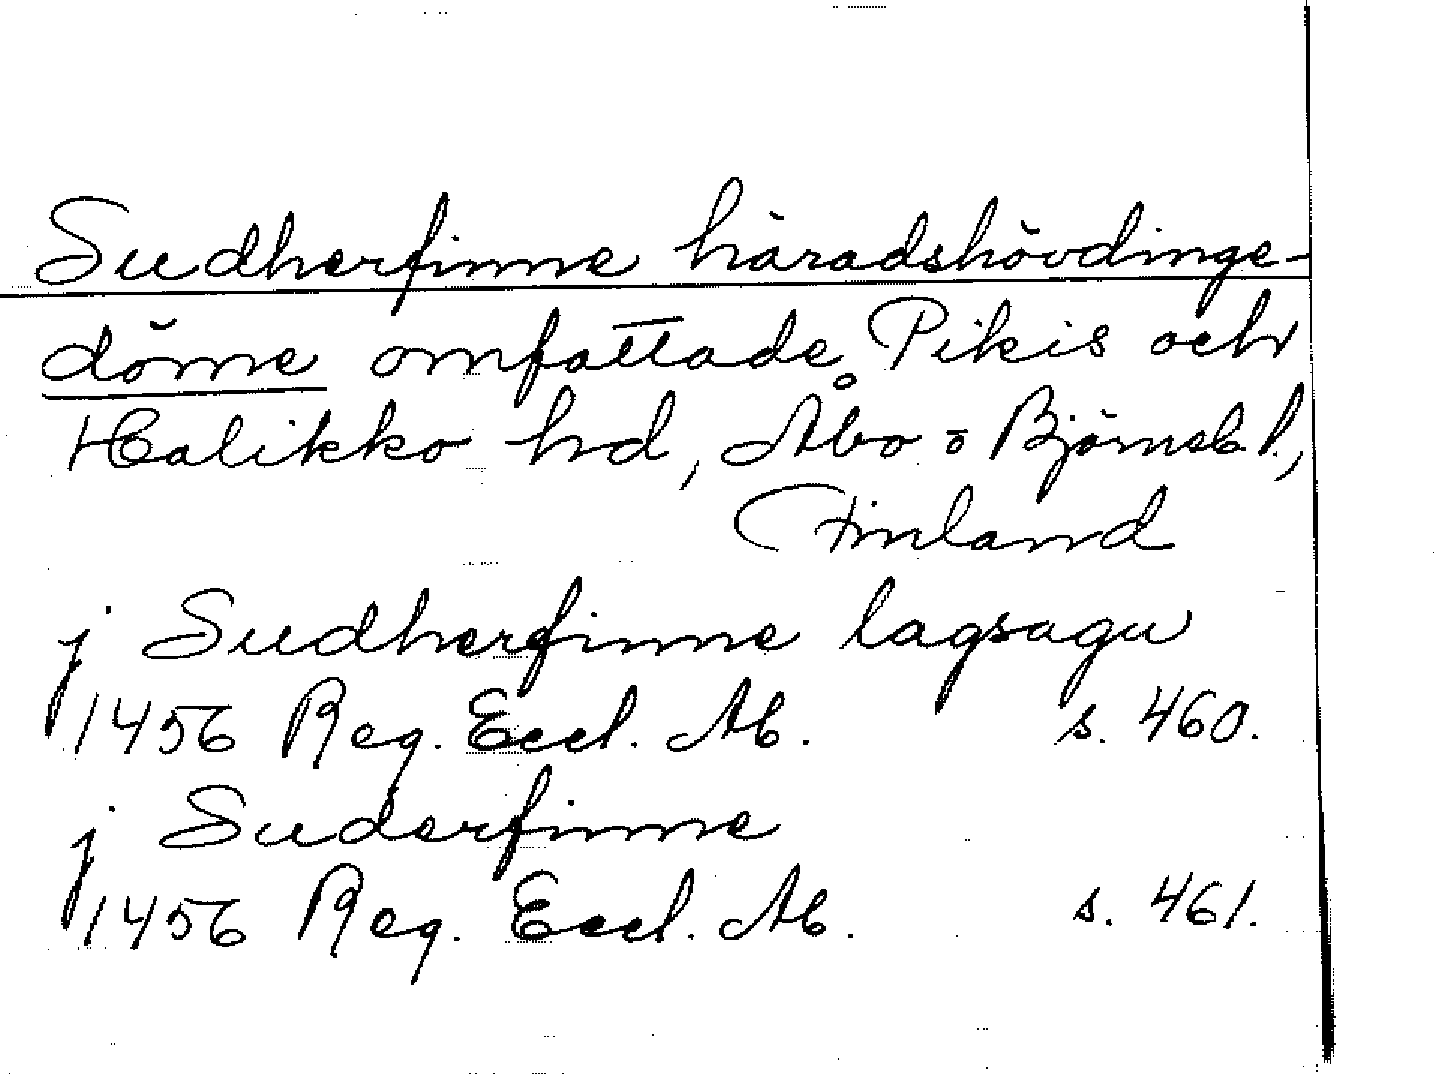 Sudherfinne häradshövdinge-
döme omfattade Pikis och
Halikko hd, Åbo o Björneb. l.,
Finland
j Sudherfinne lagsagu
1456 Reg. Eccl. Ab. s. 460.
j Suderfinne
1456 Reg. Eccl. Ab. s. 461.